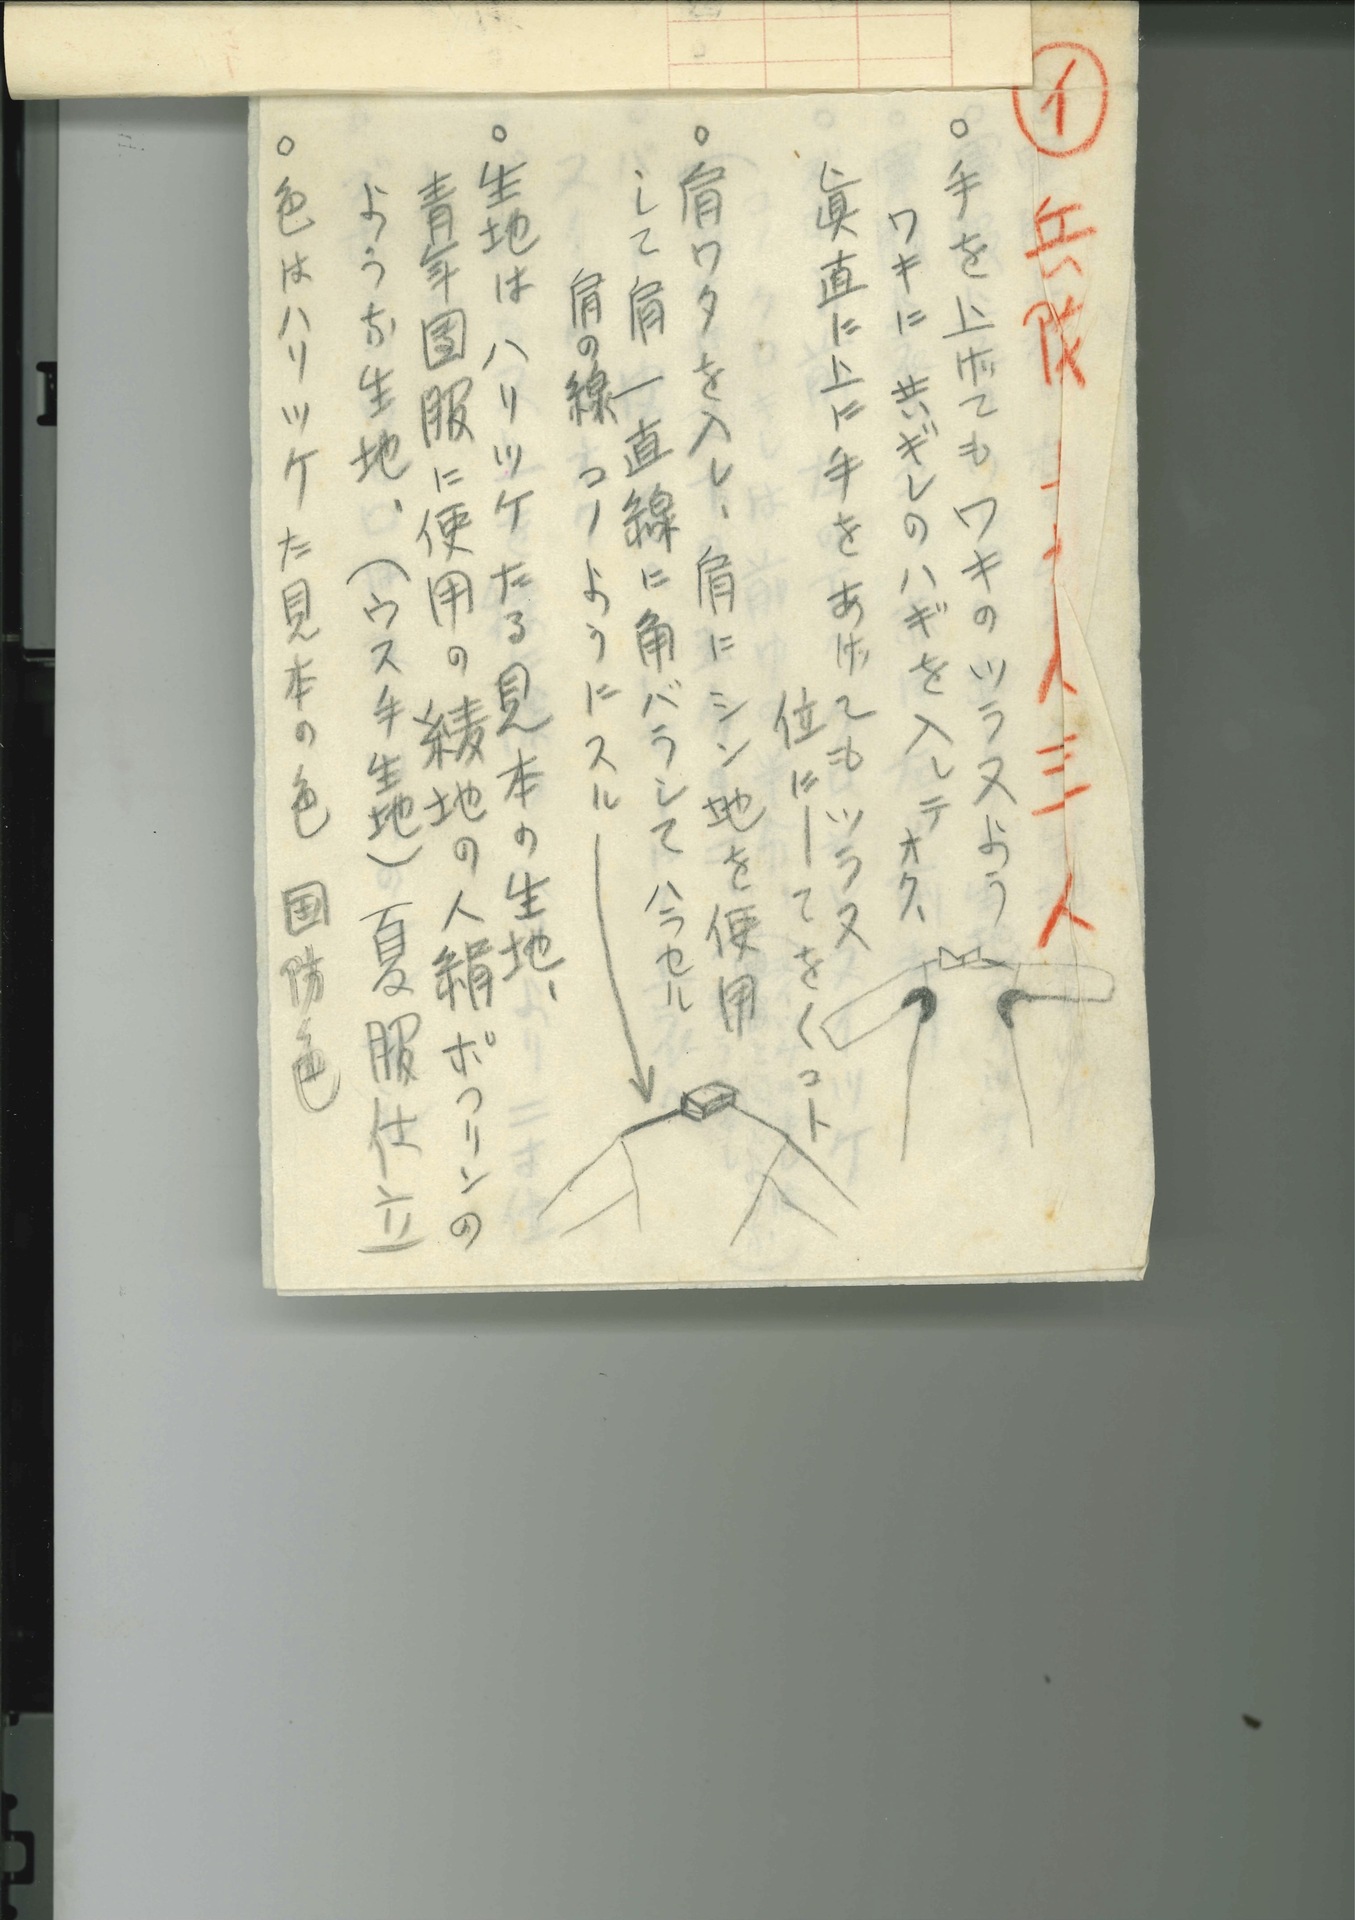 ① 兵隊 二十人三人
○手を上げてもワキのツラヌよう
ワキに共ギレのハギを入レテオク、
眞直に上に手をあげてもツラヌ
位にしてをくコト
○肩ワタを入レ、肩にシン地を使用
して肩一直線に角バラしてハラセル
肩の線コノようにスル
○生地はハリツケたる見本の生地、
青年団服に使用の綾地の人絹ポプリンの
ような生地、(ウス手生地)夏服仕立
○色はハリツケた見本の色 国防色